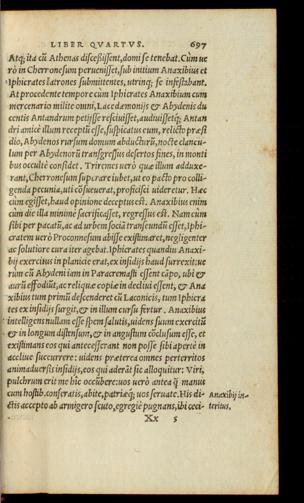 LIBER QVARTVS. 697
Atq; ita cũ Athenas discessissent, domi se tenebat. Cùm ue
rò in Cherronesum peruenisset, sub initium Anaxibius et
Iphicrates latrones submittentes, utrinq; se infestabant.
At procedente tempore cùm Iphicrates Anaxibium cum
mercenario milite omni, Lacedæmonijs & Abydenis du
centis Antandrum petijsse resciuisset, audiuissetq; Antan
dri amicè illum receptũ esse, suspicatus eum, relicto præsi
dio, Abydenos rursum domum abducturũ, nocte clancu=
lum per Abydenorũ transgressus desertos fines, in monti
bus occultè considet. Triremes uerò quæ illum adduxe=
rant, Cherronesum superare iubet, ut eo pacto pro colli=
genda pecunia, uti cõsueuerat, proficisci uideretur. Hæc
cùm egisset, haud opinione deceptus est. Anaxibius enim
cùm die illa minime sacrificasset, regressus est. Nam cùm
sibi per pacatũ, ac ad urbem sociã transeundũ esset, Iphi=
cratem uerò Proconnesum abisse existimaret, negligenter
ac solutiore cura iter agebat. Iphicrates quandiu Anaxi=
bij exercitus in planicie erat, ex insidijs haud surrexit: ue
rùm cũ Abydeni iam in Paracremasti essent cãpo, ubi &
aurũ effodiũt, ac reliquæ copiæ in decliui essent, & Ana
xibius tum primũ descenderet cũ Laconicis, tum Iphicra
tes ex insidijs surgit, & in illum cursu fertur. Anaxibius
intelligens nullam esse spem salutis, uidens suum exercitũ
& in longum distensum, & in angustum cõclusum esse, et
existimans eos qui antecesserant non posse sibi aperte in
accliue succurrere: uidens præterea omnes perterritos
animaduersis insidijs, eos qui aderãt sic alloquitur: Viri,
pulchrum erit me hîc occũbere: uos uerò antea q̃ manus
cum hostib. conseratis, abite, patriæq; uos seruate. His di= Anaxibij in=
ctis accepto ab armigero scuto, egregiè pugnans, ibi ceci= teritus.
Xx 5